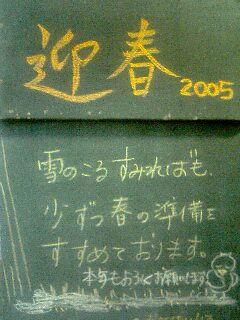 迎春 2005
雪のこる すみればも、
少ずつ春の準備を
すすめております。
本年もよろしくお願いします